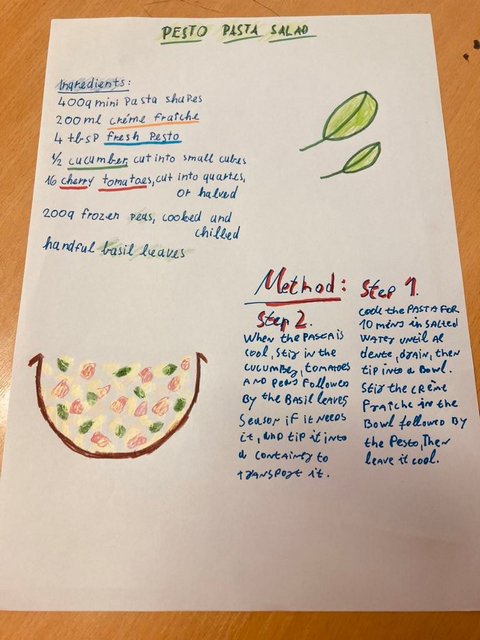 PESTO PASTA SALAD
Ingredients:
400g mini Pasta shapes
200 ml créme fraîche
4 tbsp fresh Pesto
½ cucumber cut into small cubes
16 cherry tomatoes, cut into quarters,
or halved
200g frozen peas, cooked and
chilled
handful basil leaves
Method:
Step 1.
Cook the PASTA FOR
10 mins in SALTED
WATER UNTIL AL
dente, drain, then
tip into a Bowl.
Stir the CRÈME
FRAîche in the
Bowl followed By
the Pesto, Then
leave it cool.
Step 2.
When the PASTA is
cool, stir in the
cucumber, tomatoes
AND PEAS Followed
By the Basil leaves
Season if it Needs
it, AND tip it into
a container to
transport it.